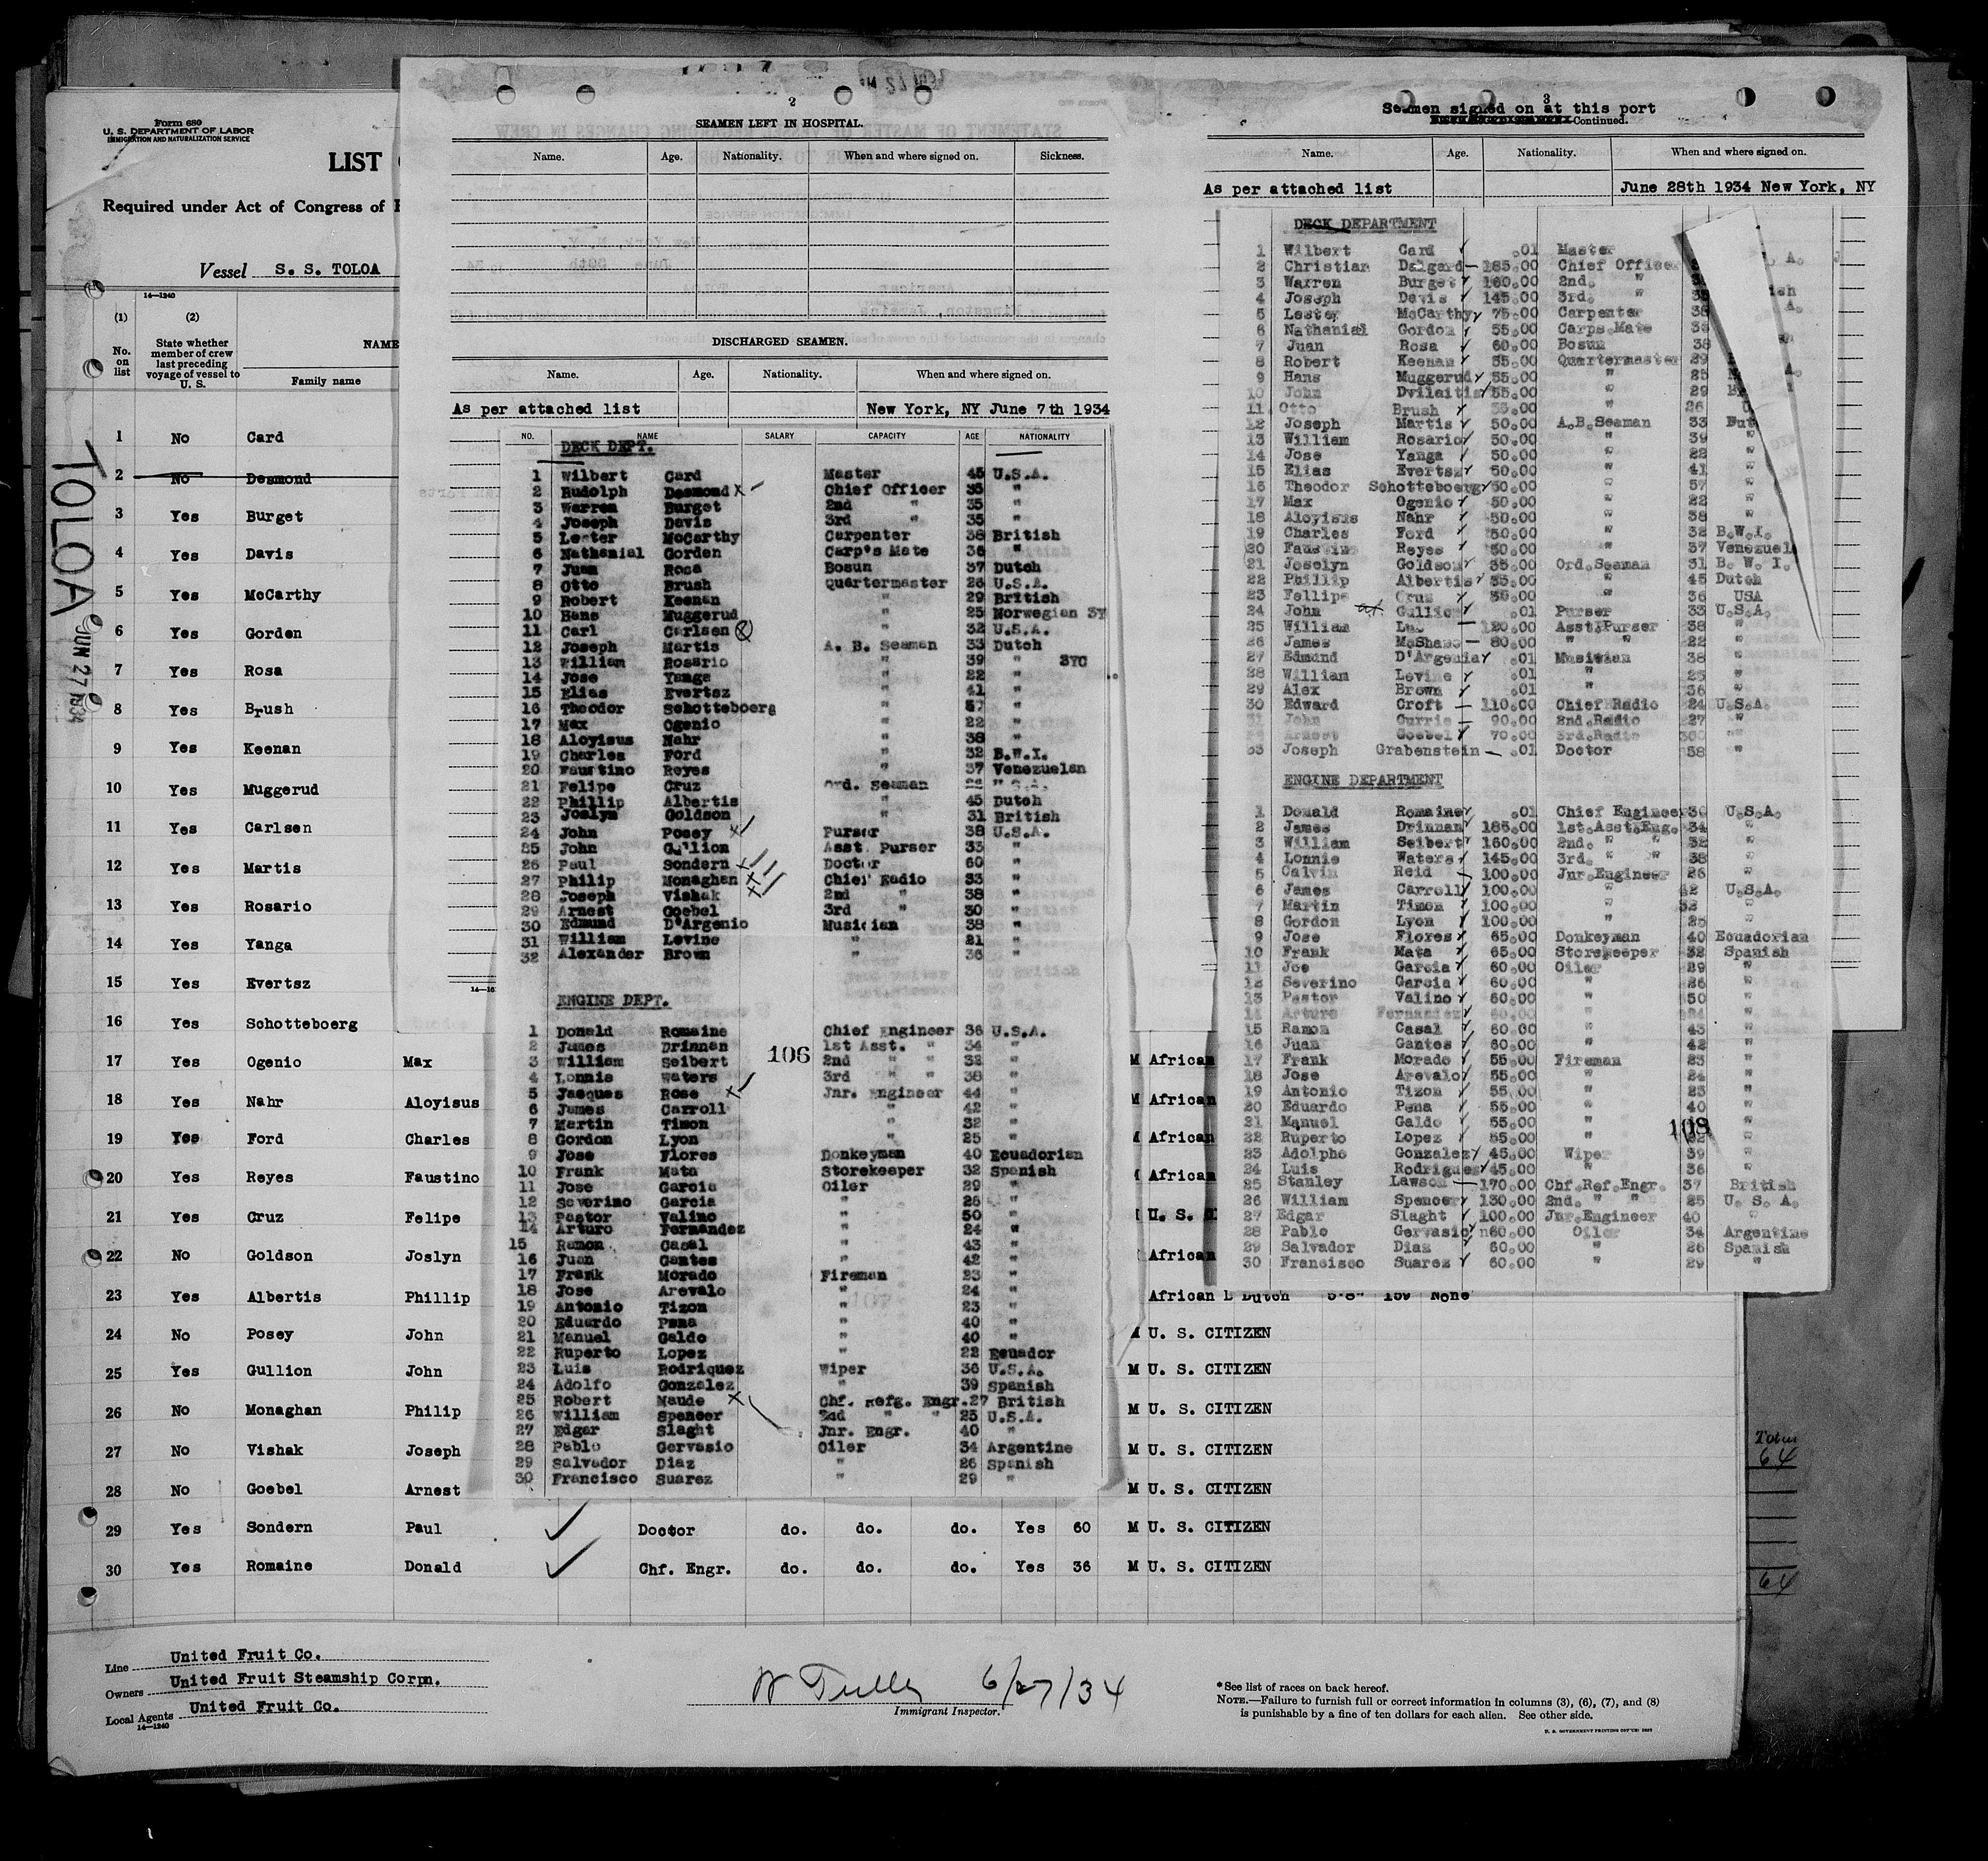 Form 680
U. S. DEPARTMENT OF LABOR
IMMIGRATION AND NATURALIZATION SERVICE
LIST
Required under Act of Congress of
Vessel S. S. TOLOA
14—1240
(1) (2)
No. on list
State whether member of crew last preceding voyage of vessel to U. S.
NAME
Family name
TOLOA
JUN 27 1934
1 No Card
2 No Desmond
3 Yes Burget
4 Yes Davis
5 Yes McCarthy
6 Yes Gorden
7 Yes Rosa
8 Yes Brush
9 Yes Keenan
10 Yes Muggerud
11 Yes Carlsen
12 Yes Martis
13 Yes Rosario
14 Yes Yanga
15 Yes Evertsz
16 Yes Schotteboerg
17 Yes Ogenio Max M African
18 Yes Nahr Aloyisus M African
19 Yes Ford Charles M African
20 Yes Reyes Faustino African
21 Yes Cruz Felipe U. S.
22 No Goldson Joslyn African
23 Yes Albertis Phillip African Dutch 5-8" 159 None
24 No Posey John M U. S. CITIZEN
25 Yes Gullion John M U. S. CITIZEN
26 No Monaghan Philip M U. S. CITIZEN
27 No Vishak Joseph M U. S. CITIZEN
28 No Goebel Arnest M U. S. CITIZEN
29 Yes Sondern Paul Doctor do. do. do. Yes 60 M U. S. CITIZEN
30 Yes Romaine Donald Chf. Engr. do. do. do. Yes 36 M U. S. CITIZEN
Line United Fruit Co.
Owners United Fruit Steamship Corpn.
Local Agents United Fruit Co.
14—1240
6/27/34
Immigrant Inspector.
*See list of races on back hereof.
NOTE.—Failure to furnish full or correct information in columns (3), (6), (7), and (8)
is punishable by a fine of ten dollars for each alien. See other side.
Total
64
64
2
SEAMEN LEFT IN HOSPITAL.
Name. Age. Nationality. When and where signed on. Sickness.
DISCHARGED SEAMEN.
Name. Age. Nationality. When and where signed on.
As per attached list New York, NY June 7th 1934
NO. NAME SALARY CAPACITY AGE NATIONALITY
DECK DEPT.
1 Wilbert Card Master 45 U.S.A.
2 Rudolph Desmond X Chief Officer 35 "
3 Warren Burget 2nd " 35 "
4 Joseph Davis 3rd " 35 "
5 Lester McCarthy Carpenter 38 British
6 Nathanial Gorden Carp's Mate 36 "
7 Juan Rosa Bosun 37 Dutch
8 Otto Brush Quartermaster 26 U.S.A.
9 Robert Keenan " 29 British
10 Hans Muggerud " 25 Norwegian 3Y
11 Carl Carlsen X " 32 U.S.A.
12 Joseph Martis A. B. Seaman 33 Dutch
13 William Rosario " 39 " 3YC
14 Jose Yanga " 22 "
15 Elias Evertsz " 41 "
16 Theodor Schotteboerg " 57 "
17 Max Ogenio " 22 "
18 Aloyisus Nahr " 38 "
19 Charles Ford " 32 B.W.I.
20 Faustino Reyes " 37 Venezuelan
21 Felipe Cruz Ord. Seaman
22 Phillip Albertis " 45 Dutch
23 Joslyn Goldson " 31 British
24 John Posey X Purser 38 U.S.A.
25 John Gullion Asst. Purser 33 "
26 Paul Sondern X Doctor 60 "
27 Philip Monaghan X Chief Radio 33 "
28 Joseph Vishak X 2nd " 38 "
29 Arnest Goebel 3rd " 30 "
30 Edmund D'Argenio Musician 38 "
31 William Levine " 21 "
32 Alexander Brown " 36 "
ENGINE DEPT.
1 Donald Romaine Chief Engineer 36 U.S.A.
2 James Drinnan 1st Asst. " 34 "
106
3 William Seibert 2nd " " 32 "
4 Lonnie Waters 3rd " " 38 "
5 Jacques Rose X Jnr. Engineer 44 "
6 James Carroll " 42 "
7 Martin Timon " 32 "
8 Gordon Lyon " 25 "
9 Jose Flores Donkeyman 40 Ecuadorian
10 Frank Mata Storekeeper 32 Spanish
11 Jose Garcia Oiler 29 "
12 Severino Garcia " 26 "
13 Pastor Valino " 50 "
14 Arturo Fernandez " 24 "
15 Ramon Casal " 43 "
16 Juan Gantes " 42 "
17 Frank Morado Fireman 23 "
18 Jose Arevalo " 24 "
19 Antonio Tizon " 23 "
20 Eduardo Pena " 40 "
21 Manuel Galdo " 40 "
22 Ruperto Lopez " 22 Ecuador
23 Luis Rodriquez Wiper 36 U.S.A.
24 Adolfo Gonzalez " 39 Spanish
25 Robert Maude X Chf. Refg. Engr. 27 British
26 William Spencer 2nd " " 25 U.S.A.
27 Edgar Slaght Jnr. Engr. 40 "
28 Pablo Gervasio Oiler 34 Argentine
29 Salvador Diaz " 26 Spanish
30 Francisco Suarez " 29 "
3
Seamen signed on at this port
Continued.
Name. Age. Nationality. When and where signed on.
As per attached list June 28th 1934 New York, NY
DECK DEPARTMENT
1 Wilbert Card .01 Master
2 Christian Dalgard 185.00 Chief Officer
3 Warren Burget 160.00 2nd. "
4 Joseph Davis 145.00 3rd. " 35
5 Lester McCarthy 75.00 Carpenter 38
6 Nathanial Gordon 55.00 Carps.Mate 36
7 Juan Rosa 60.00 Bosun 38
8 Robert Keenan 55.00 Quartermaster 29
9 Hans Muggerud 55.00 " 25
10 John Dvilaitis 55.00 " 29
11 Otto Brush 55.00 " 26
12 Joseph Martis 50.00 A.B.Seaman 33 Dut
13 William Rosario 50.00 " 39 "
14 Jose Yanga 50.00 " 22 "
15 Elias Evertsz 50.00 " 41 "
16 Theodor Schotteboerg 50.00 " 57 "
17 Max Ogenio 50.00 " 22 "
18 Aloyisis Nahr 50.00 " 38 "
19 Charles Ford 50.00 " 32 B.W.I.
20 Reyes 50.00 " 37 Venezuel
21 Joselyn Goldson 35.00 Ord.Seaman 31 B. W. I.
22 Phillip Albertis 35.00 " 45 Dutch
23 Fellipe Cruz 35.00 " 36 USA
24 John .01 Purser 33 U.S.A.
25 William 120.00 Asst.Purser 38 "
26 James McShane 80.00 " " 22 "
27 Edmund D'Argenia .01 Musitian 38 "
28 William Levine .01 " 25 "
29 Alex Brown .01 " 36 "
30 Edward Croft 110.00 Chief Radio 24 U.S.A.
31 John Currie 90.00 2nd.Radio 27 "
Arnest Goebel 70.00 3rd.Radio 300 "
33 Joseph Grabenstein .01 Doctor 58 "
ENGINE DEPARTMENT
1 Donald Romaine .01 Chief Engineer 36 U.S.A.
2 James Drinnan 185.00 1st.Asst.Eng. 34 "
3 William Seibert 160.00 2nd. " " 32 "
4 Lonnie Waters 145.00 3rd. " " 38 "
5 Calvin Reid 100.00 Jnr.Engineer 26 "
6 James Carroll 100.00 " 42 U.S.A.
7 Martin Timon 100.00 " 32 "
8 Gordon Lyon 100.00 " 25 "
9 Jose Flores 65.00 Donkeyman 40 Ecuadorian
10 Frank Mata 65.00 Storekeeper 32 Spanish
11 Joe Garcia 60.00 Oiler 29 "
12 Severino Garcia 60.00 " 26 "
13 Pastor Valino 60.00 " 50 "
14 Arturo Fernandez 60.00 " 24 "
15 Ramon Casal 60.00 " 43 "
16 Juan Gantes 60.00 " 42 "
17 Frank Morado 55.00 Fireman 23 "
18 Jose Arevalo 55.00 " 24 "
19 Antonio Tizon 55.00 " 23 "
20 Eduardo Pena 55.00 " 40 "
21 Manuel Galdo 55.00 "
108
22 Ruperto Lopez 55.00 " 22 "
23 Adolpho Gonzalez 45.00 Wiper 39 "
24 Luis Rodrigues 45.00 " 36 "
25 Stanley Lawson 170.00 Chf.Ref.Engr. 37 British
26 William Spencer 130.00 2nd. " " 25 U. S. A.
27 Edgar Slaght 100.00 Jnr.Engineer 40 "
28 Pablo Gervasio 60.00 Oiler 34 Argentine
29 Salvador Diaz 60.00 " 26 Spanish
30 Francisco Suarez 60.00 " 29 "